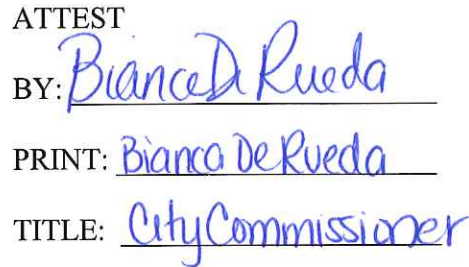 ATTEST
BY: Bianca De Rueda
PRINT: Bianca De Rueda
TITLE: City Commissioner